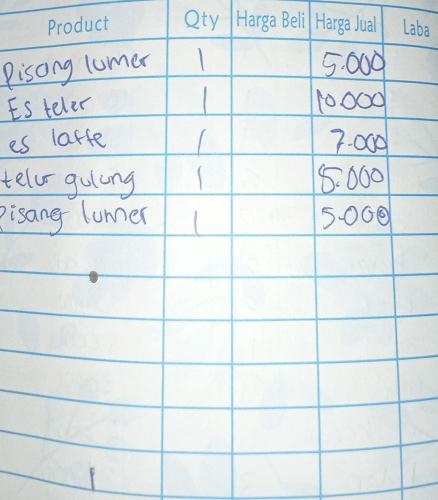 Product Qty Harga Beli Harga Jual Laba
Pisang lumer 1 5.000
Es teler 1 10.000
es latte 1 7.000
telur gulung 1 5.000
Pisang lumer 1 5.000